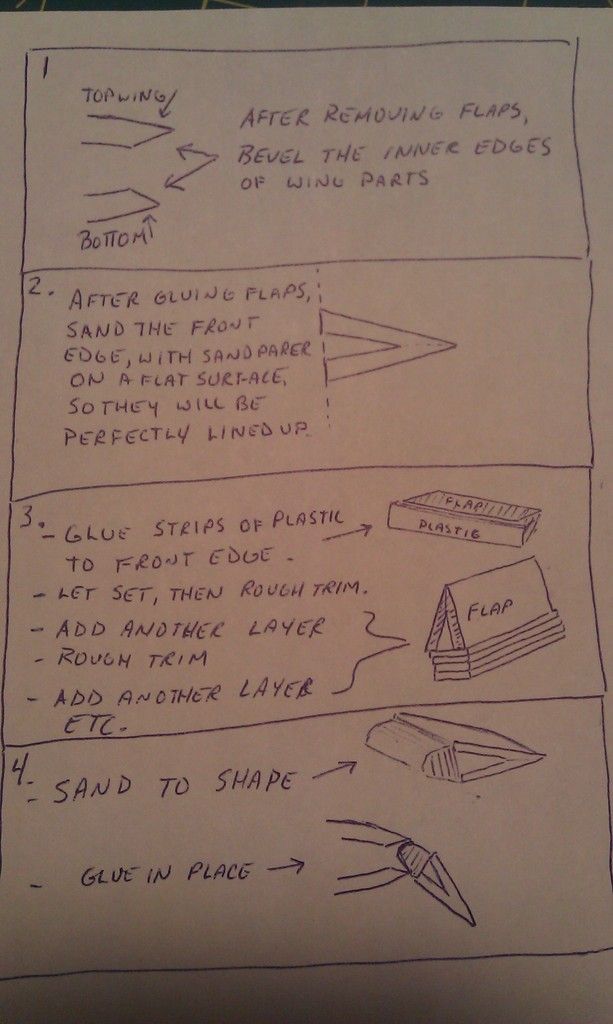 1
TOPWING
AFTER REMOVING FLAPS,
BEVEL THE INNER EDGES
OF WING PARTS
BOTTOM
2. AFTER GLUING FLAPS,
SAND THE FRONT
EDGE, WITH SANDPAPER
ON A FLAT SURFACE,
SO THEY WILL BE
PERFECTLY LINED UP.
3. - GLUE STRIPS OF PLASTIC
TO FRONT EDGE.
FLAP
PLASTIC
- LET SET, THEN ROUGH TRIM.
- ADD ANOTHER LAYER
- ROUGH TRIM
- ADD ANOTHER LAYER
ETC.
FLAP
4.
- SAND TO SHAPE
- GLUE IN PLACE